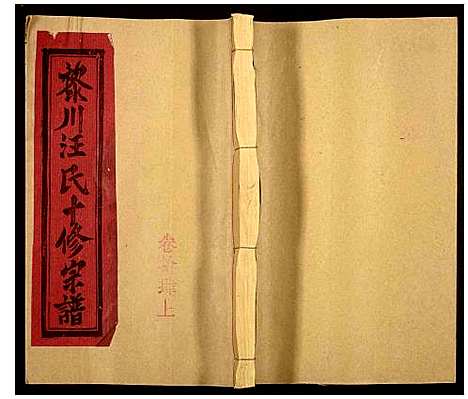 黎川汪氏十修宗譜
卷上